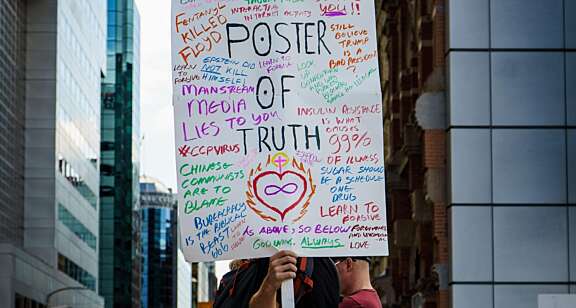 YOU!!
FENTANYL
KILLED
FLOYD
INTERACTIVE
INTERACT
POSTER
OF
TRUTH
EPSTEIN DID
NOT KILL
HIMSELF!
LEARN
TO
FORGIVE
LEARN TO
FORGIVE
STILL
BELIEVE
TRUMP
IS A
BAD PERSON
?
LOOK
UP
MAINSTREAM
MEDIA
LIES TO YOU
#CCPVIRUS
CHINESE
COMMUNISTS
ARE TO
BLAME
BUREAUCRACY
IS THE BIBLICAL
BEAST
INSULIN RESISTANCE
IS WHAT
CAUSES
99%
OF ILLNESS
SUGAR SHOULD
BE A SCHEDULE
ONE
DRUG
LEARN TO
FORGIVE
AS ABOVE; SO BELOW
GOD WINS. ALWAYS
FORGIVENESS
LOVE